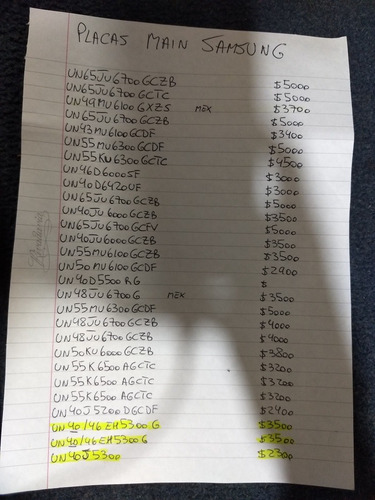 PLACAS MAIN SAMSUNG
UN65JU6700GCZB $5000
UN65JU6700GCTC $5000
UN49MU6100GXZS MEX $3700
UN65JU6700GCZB $5000
UN43MU6100GCDF $3400
UN55MU6300GCDF $5000
UN55KU6300GCTC $4500
UN46D6000SF $3000
UN40D6420UF $3000
UN65JU6700GCZB $5000
UN40JU6000GCZB $3500
UN65JU6700GCFV $5000
UN40JU6000GCZB $3500
UN55MU6100GCZB $3500
UN50MU6100GCDF $2900
UN40D5500RG $
UN48JU6700G MEX $3500
UN55MU6300GCDF $5000
UN48JU6700GCZB $4000
UN48JU6700GCZB $4000
UN50KU6000GCZB $3800
UN55K6500AGCTC $3200
UN55K6500AGCTC $3200
UN55K6500AGCTC $3200
UN40J5200DGCDF $2400
UN40/46EH5300G $3500
UN40/46EH5300G $3500
UN40J5300 $2300